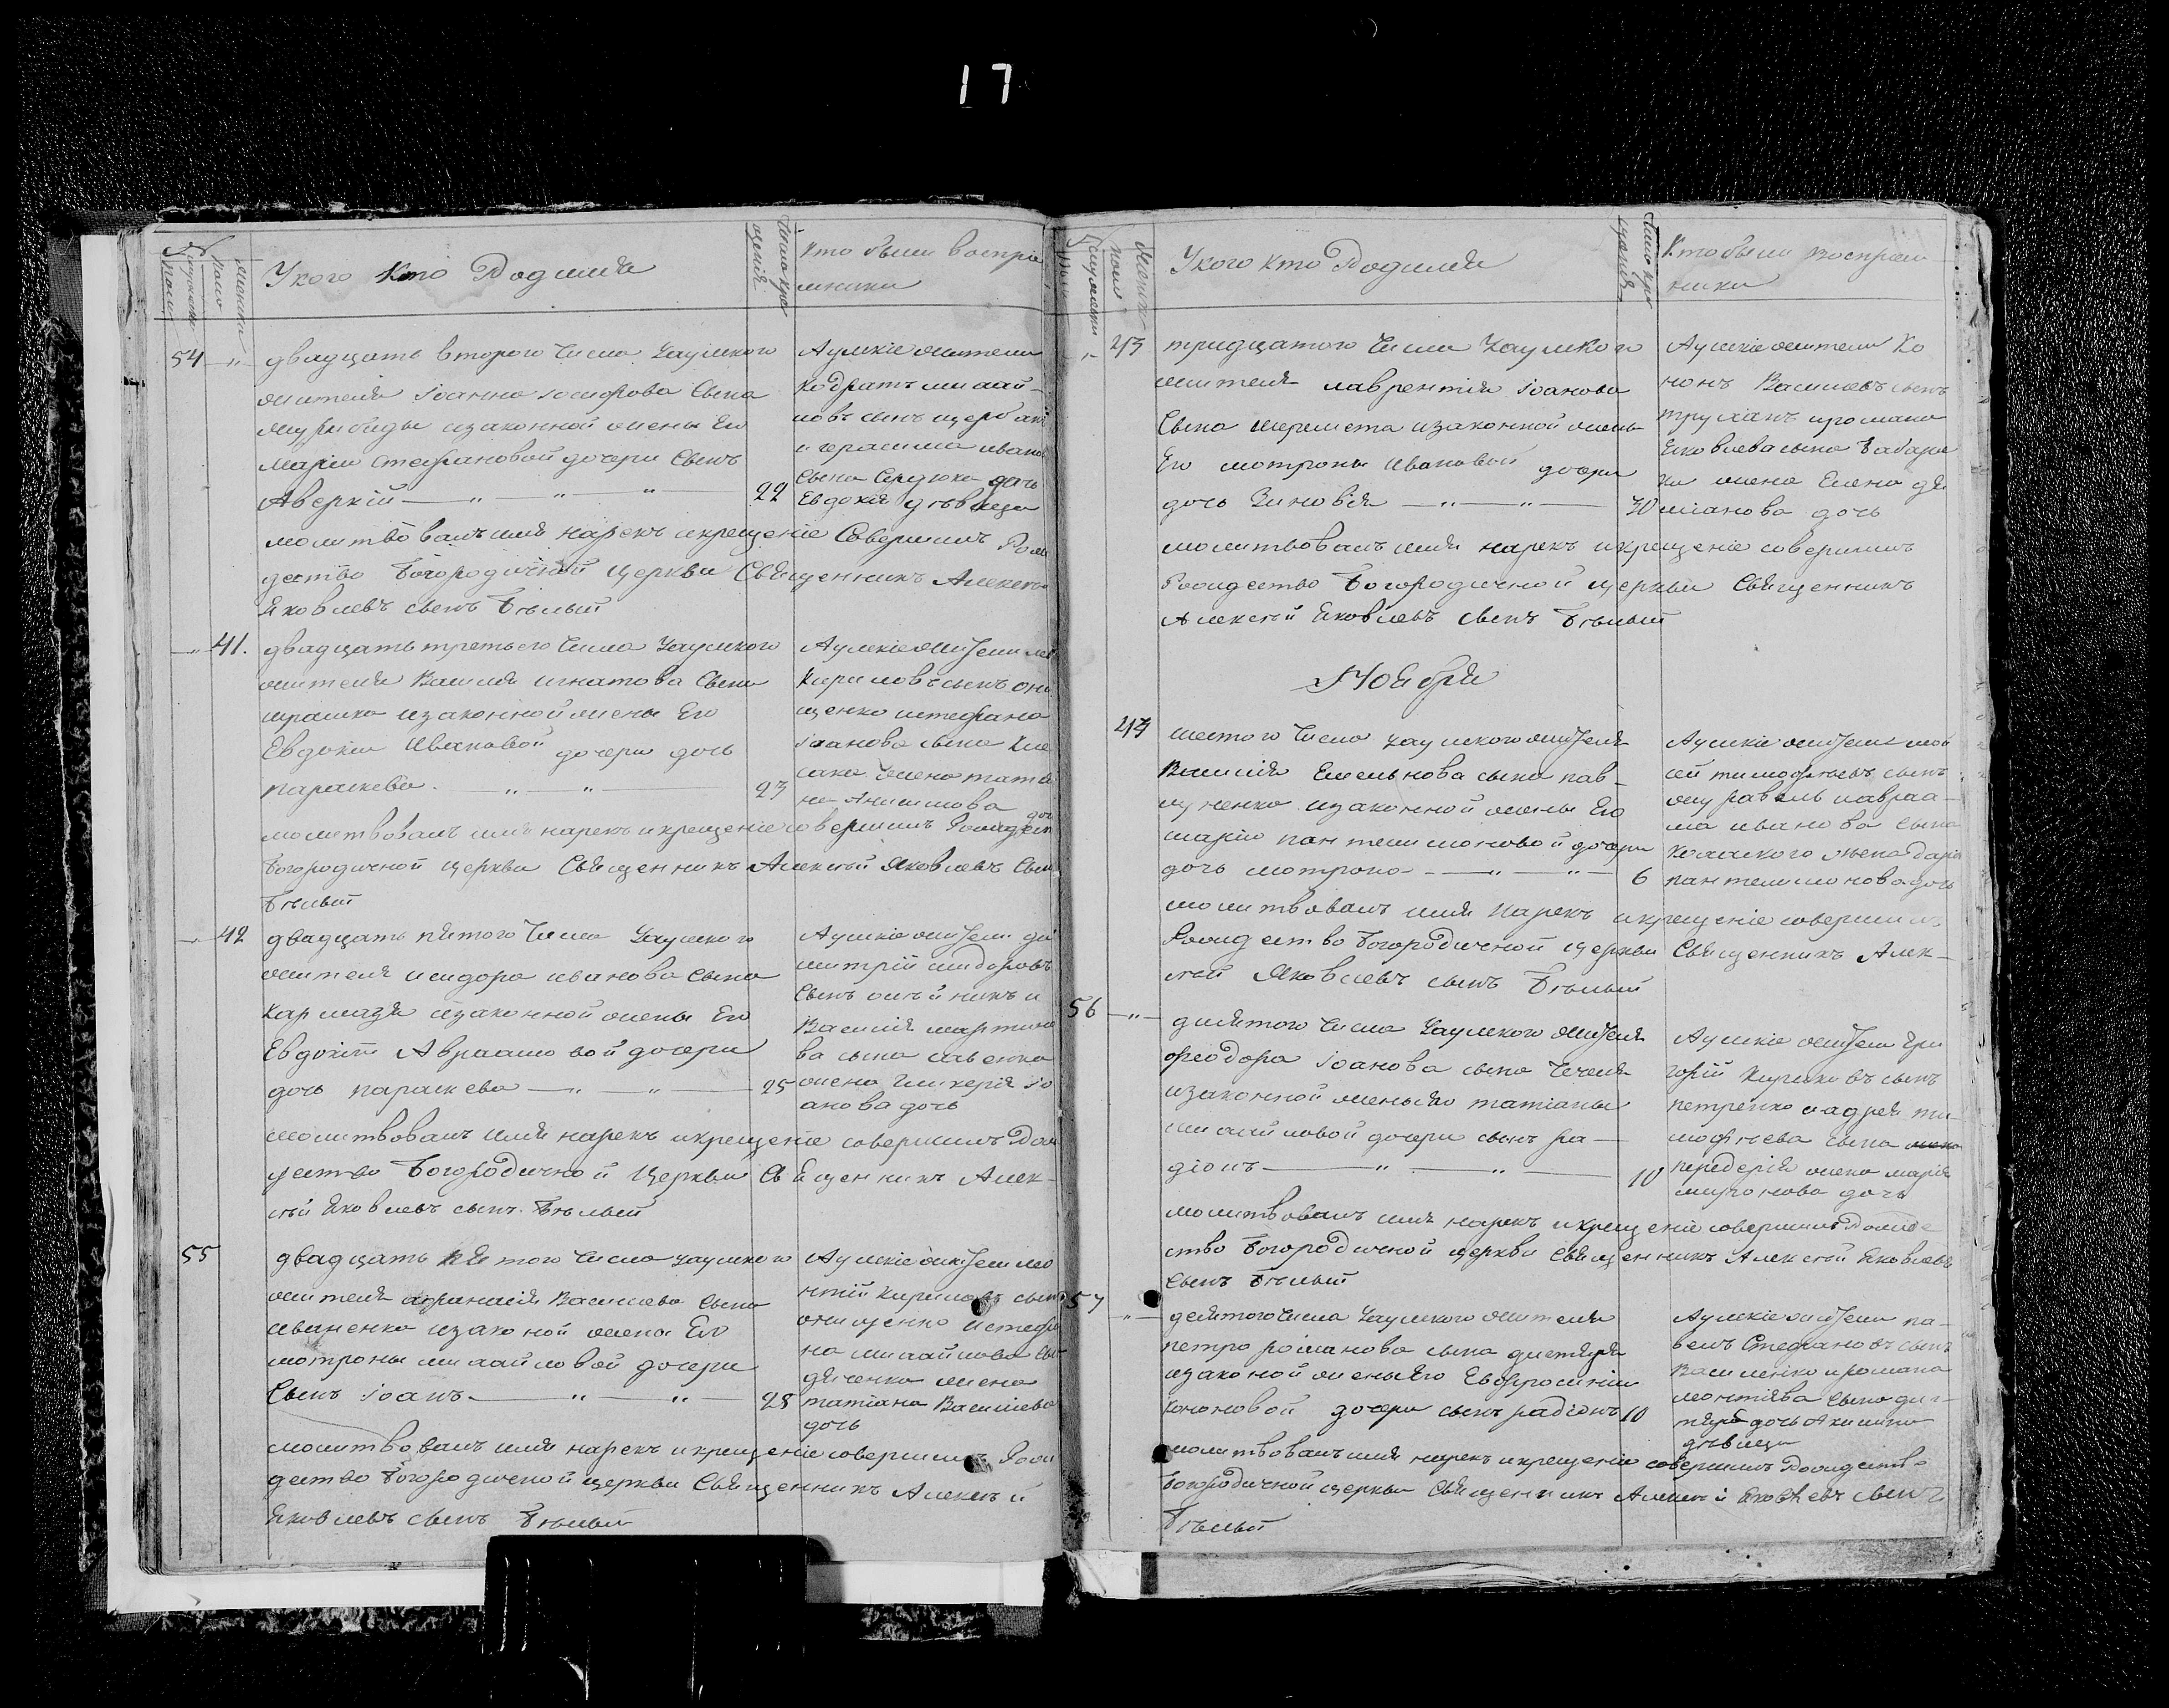 17
№
мужеска
полу
полу
женска
У кого кто Родился
Число кре
щенія
Кто были воспрiе
мники
54
двадцать второго числа заумского
жителя іоанна іосифова сына
из законной жены его
маріи стефановой дочери сынъ
Аверкій
22
Аумскіе жители
Кодратъ михай-
ловъ сынъ щербакъ
и герасима ивано
сына Сердюка дочь
Евдокія дѣвица
молитвовалъ имя нарекъ и крещеніе совершилъ Рож
дество Богородичной церкви Священникъ Алексѣ
Яковлевъ сынъ Бѣлый
41.
двадцать третьего числа заумского
жителя Василія игнатова сына
из законной жены его
Евдокіи Ивановой дочери дочь
параскева
23
Аумскіе жители
Кириловъ сынъ они
щенко и стефана
іоанова сына
жена татіа
на Анисимова
дочь
молитвовалъ имя нарекъ и крещеніе совершилъ Рождест
Богородичной церкви Священникъ Алексѣй Яковлевъ Сынъ
Бѣлый
42
двадцать пятого числа заумского
жителя исидора иванова сына
из законной жены его
Евдокіи Авраамовой дочери
дочь параскева
25
Аумскіе жители ди
митрій сидоровъ
сынъ олѣйникъ и
Василія мартино
ва сына савенка
жена гликерія іо
анова дочь
молитвовалъ имя нарекъ и крещеніе совершилъ Рож
дество Богородичной церкви Священникъ Алек-
сѣй Яковлевъ сынъ Бѣлый
55
двадцать пятого числа заумского
жителя афанасія Василіева сына
иваненка из законой жены его
мотроны михайловой дочери
Сынъ іоанъ
25
Аумскіе жители лео
нтій кириловъ сынъ
онищенко и стефа
на михайлова сы
дяченка жена
татіана Василіева
дочь
молитвовалъ имя нарекъ и крещеніе совершилъ Рож
дество Богородичной церкви Священникъ Алексѣй
Яковлевъ сынъ Бѣлый
№
мужеска
полу
женска
У кого кто Родился
Число кре
щенія
Кто были воспріем
ники
43
тридцатого числа заумского
жителя лаврентія іоанова
сына шеремета из законной жены
его мотроны Ивановой дочери
дочь Зиновія
30
Аумскіе жители Ко
нонъ Василіевъ сынъ
труханъ и романа
Яковлева сына бабари
ки жена Елена де
міанова дочь
молитвовалъ имя нарекъ и крещеніе совершилъ
Рождество Богородичной церкви Священникъ
Алексѣй Яковлевъ сынъ Бѣлый
Ноября
44
шестого числа заумского жителя
Василія Емельянова сына пав-
луненка из законной жены его
маріи пантелимоновой дочери
дочь мотрона
6
Аумскіе жители мои
сей тимофѣевъ сынъ
журавель и авраа-
ма иванова сына
жена дарія
пантелимонова дочь
молитвовалъ имя нарекъ и крещеніе совершилъ
Рождество Богородичной церкви Священникъ Алек-
сѣй Яковлевъ сынъ Бѣлый
56
девятого числа заумского жителя
феодора іоанова сына чечеля
из законной жены его татіаны
михайловой дочери сынъ ра-
діонъ
10
Аумскіе жители гри
горій кириковъ сынъ
петренко и адрея ти
мофѣева сына
передерія жена марія
миронова дочь
молитвовалъ имя нарекъ и крещеніе совершилъ Рожде
ство Богородичной церкви Священникъ Алексѣй Яковлевъ
сынъ Бѣлый
57
девятого числа заумского жителя
петра романова сына дегтяря
из законой жены его Евфросиніи
Кононовой дочери сынъ радіонъ
10
Аумскіе жители па-
велъ Стефановъ сынъ
Василенко и романа
леонтіева сына дег-
тяря дочь Акилина
дѣвица
молитвовалъ имя нарекъ и крещеніе совершилъ Рождество
Богородичной церкви Священникъ Алексѣй Яковлевъ сынъ
Бѣлый